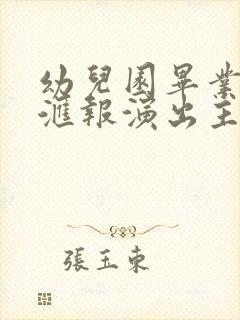 幼兒園畢業
滙報演出主
張玉東